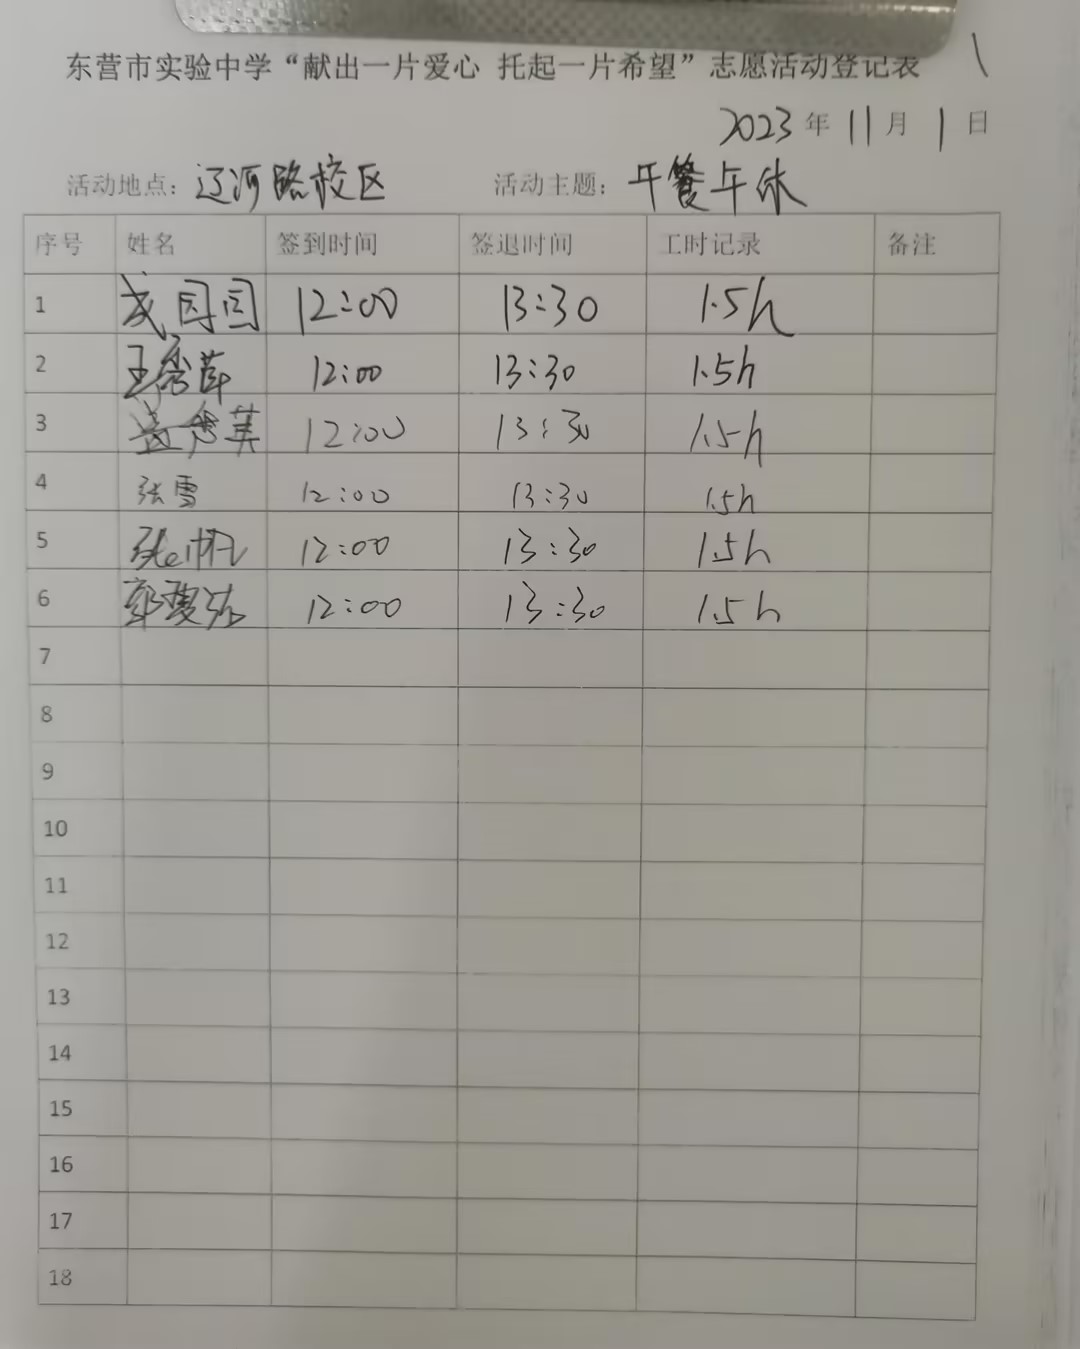 东营市实验中学“献出一片爱心 托起一片希望”志愿活动登记表 1
2023 年 11 月 1 日
活动地点：辽河路校区 活动主题：午餐午休
序号 姓名 签到时间 签退时间 工时记录 备注
1 12:00 13:30 1.5h
2 王秀萍 12:00 13:30 1.5h
3 12:00 13:30 1.5h
4 张雪 12:00 13:30 1.5h
5 12:00 13:30 1.5h
6 12:00 13:30 1.5h
7
8
9
10
11
12
13
14
15
16
17
18